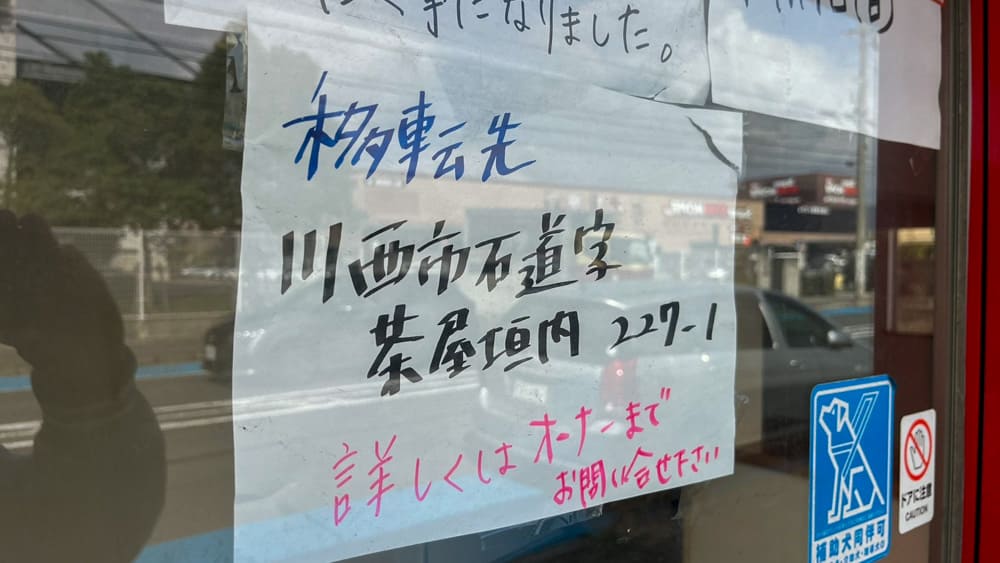 になりました。
移転先
川西市石道字
茶屋垣内 227-1
詳しくは オーナーまで
お問い合せ下さい
補助犬同伴可
ドアに注意
CAUTION